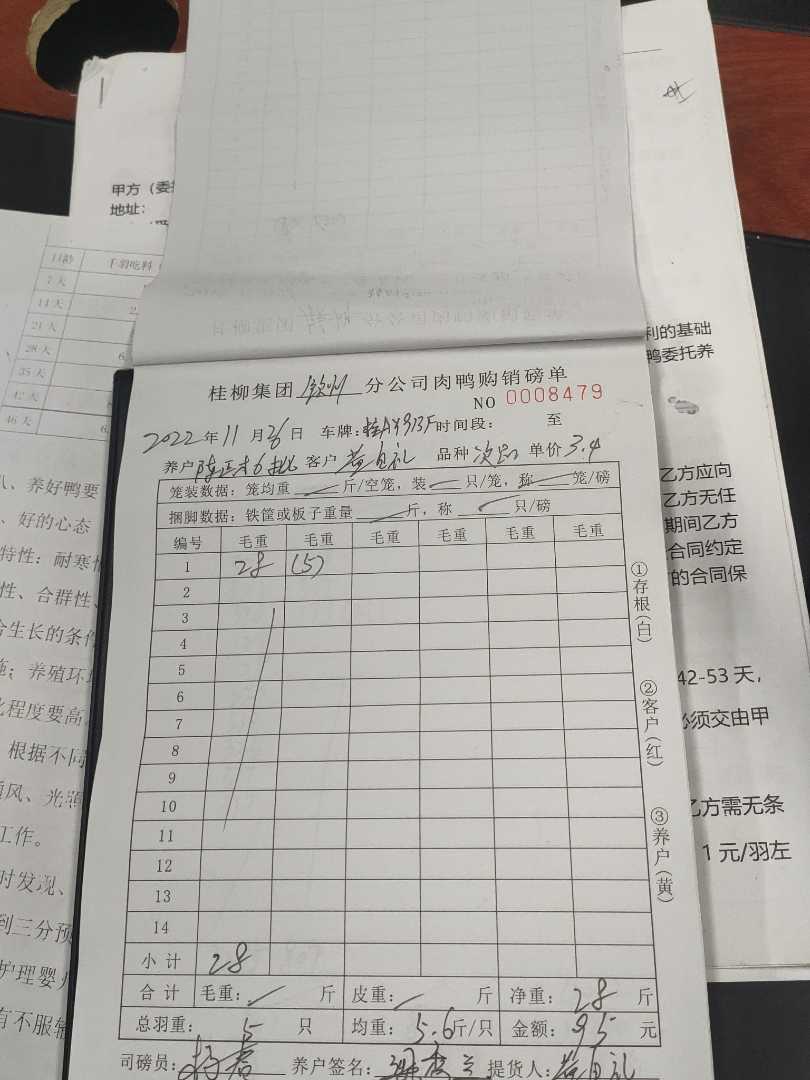 甲方（委
地址：
日龄 千羽吃料
7天
14天
21天
28天
35天
42天
46天
八、养好鸭要
、好的心态
特性：耐寒
性、合群性、
合生长的条件
施；养殖环境
化程度要高
根据不同
通风、光照
工作。
时发现、
到三分预
护理婴儿
有不服输
利的基础
鸭委托养
乙方应向
乙方无任
期间乙方
合同约定
的合同保
42-53天，
必须交由甲
乙方需无条
1元/羽左
桂柳集团 钦州 分公司肉鸭购销磅单
NO 0008479
2022年11月26日 车牌： 时间段： 至
养户 客户 黄自礼 品种 次品 单价 3.4
笼装数据：笼均重 斤/空笼，装 只/笼，称 笼/磅
捆脚数据：铁筐或板子重量 斤，称 只/磅
编号 毛重 毛重 毛重 毛重 毛重 毛重
1 28 (5)
2
3
4
5
6
7
8
9
10
11
12
13
14
小计 28
合计 毛重： 斤 皮重： 斤 净重：28 斤
总羽重： 5 只 均重：5.6斤/只 金额：95 元
司磅员： 养户签名： 提货人：黄自礼
①存根(白)
②客户(红)
③养户(黄)